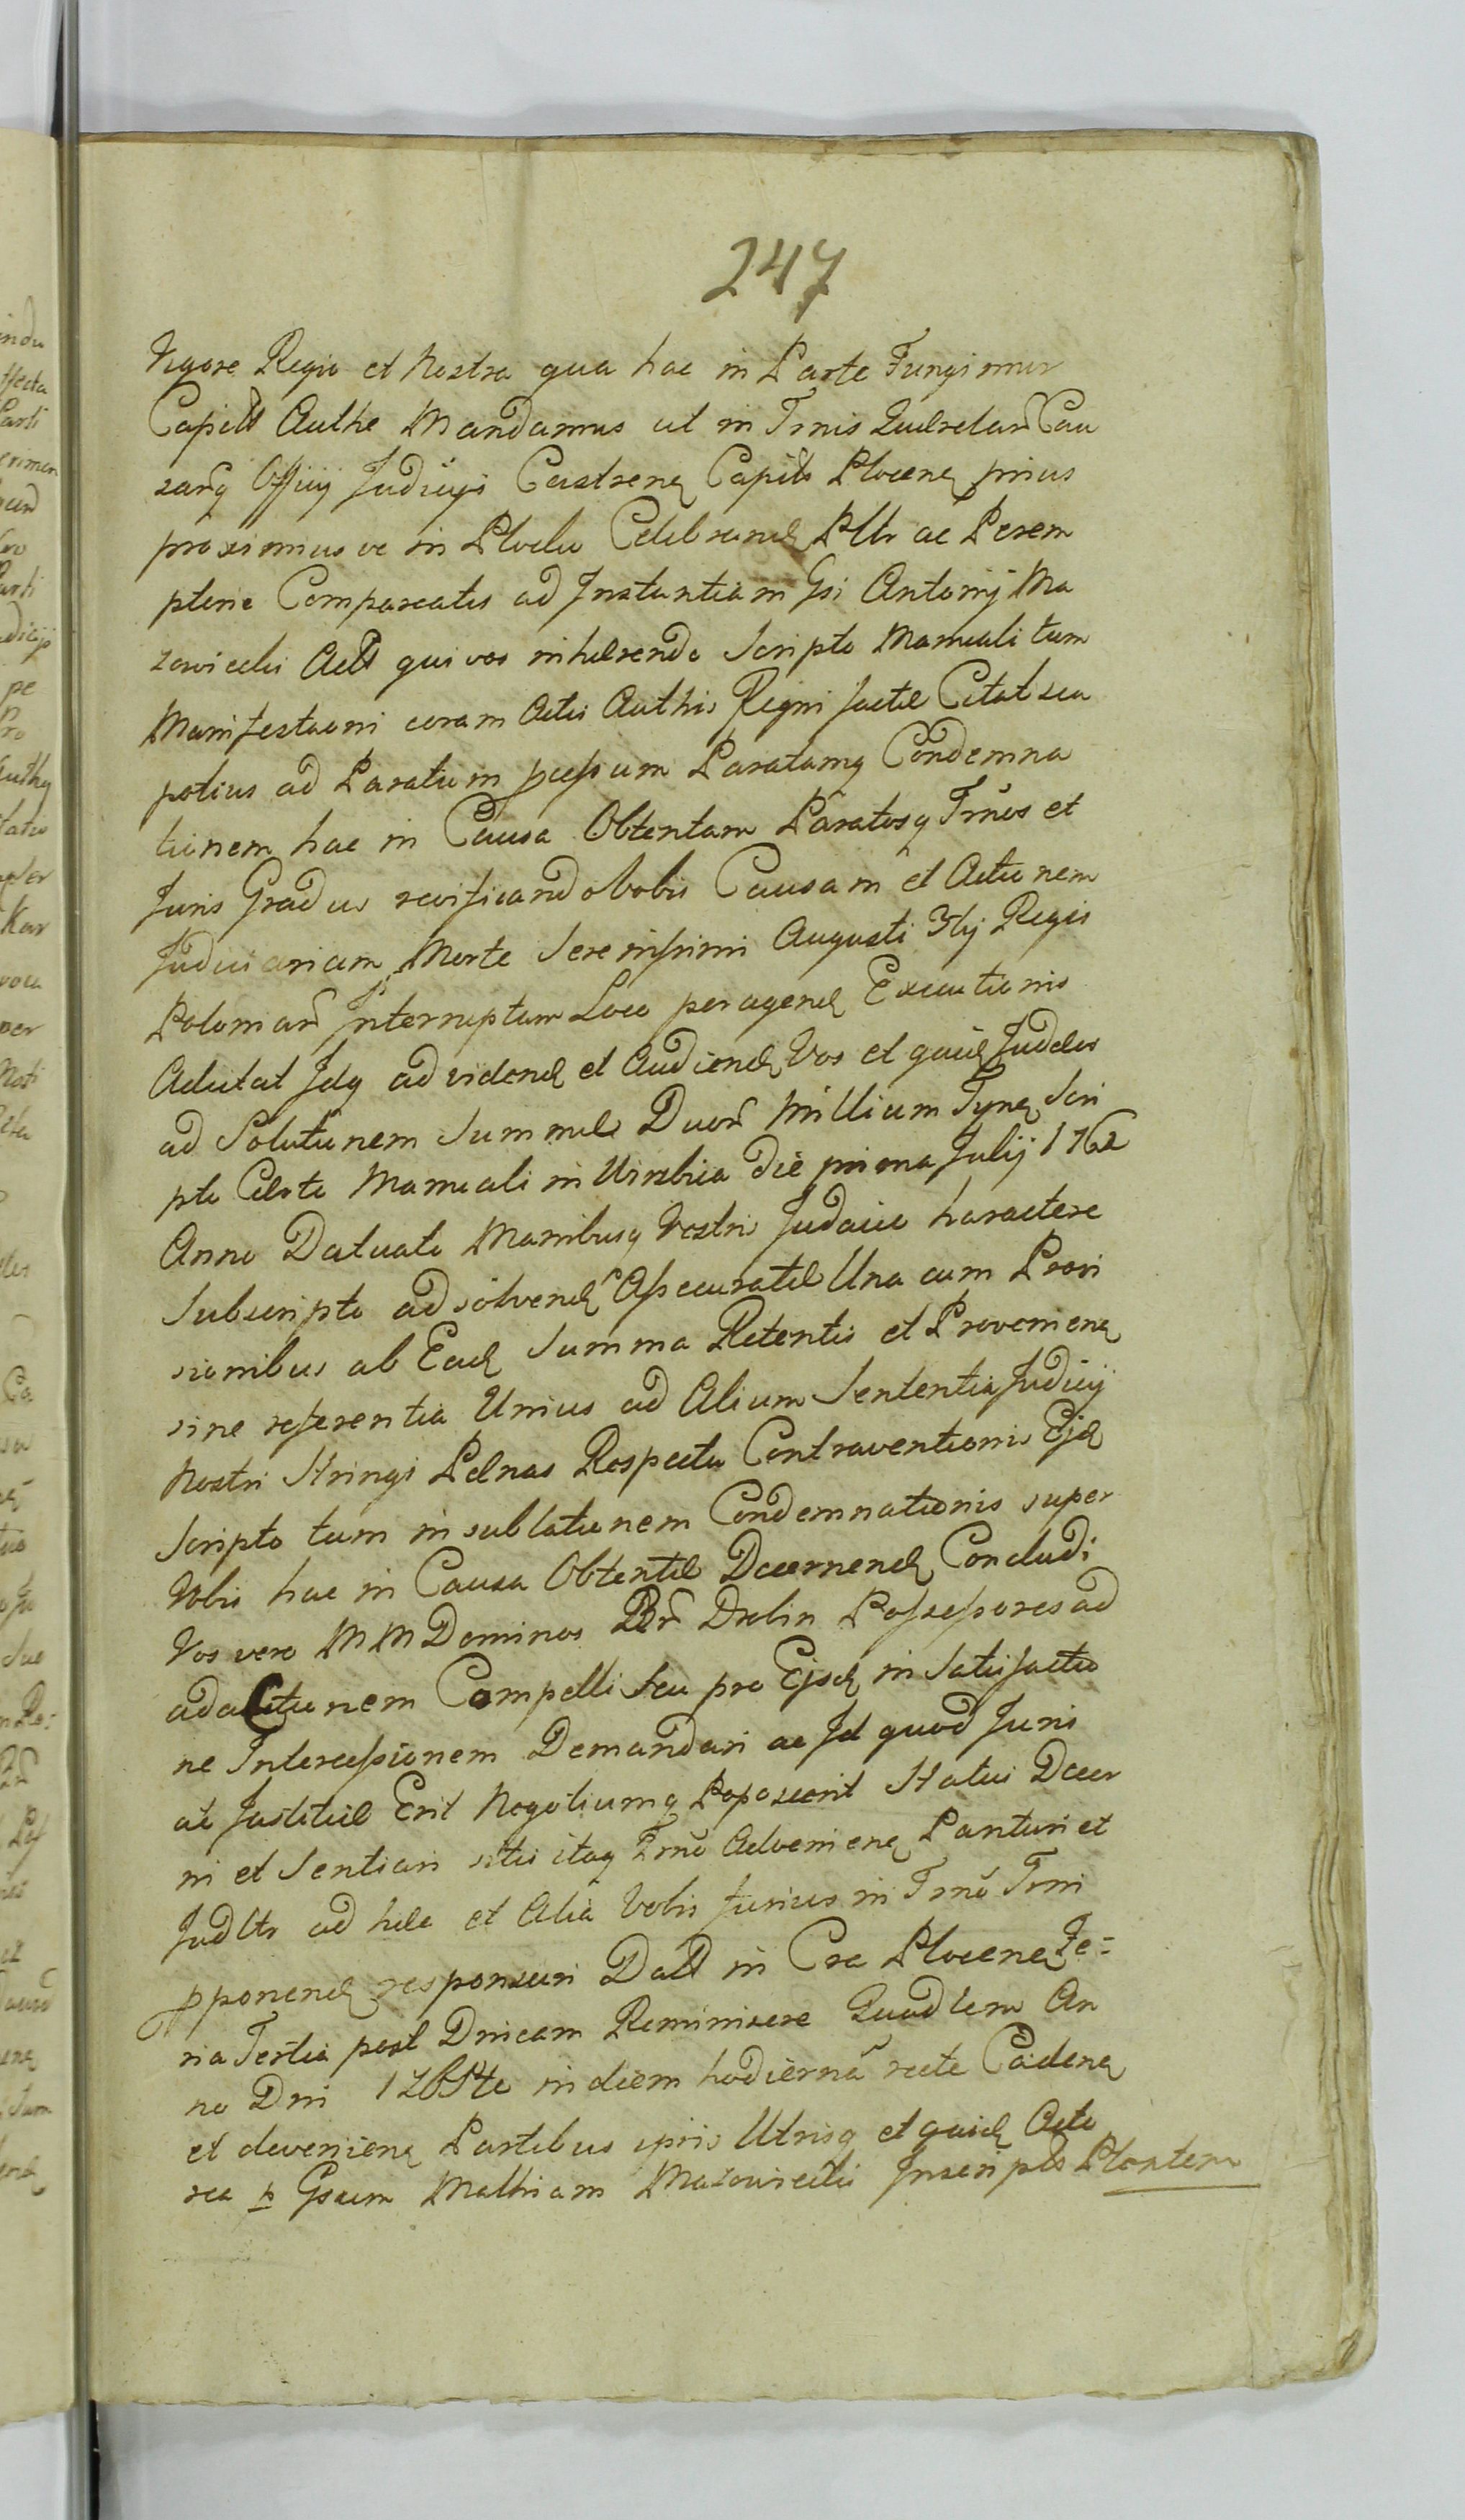 247
Vigore Regio et Nostra qua hac in Parte Fungimur
Capitt Authe Mandamus ut in Trnis Querelar Cau
sarq Officij Judicijs Castrenq Capitt Plocenq prius
proximius ve in Plocko Celebrandq Pltr ac Perem
ptorie Compareatis ad Instantiam Gsi Antonij Ma
zowiecki Actt qui vos inhærendo Scripto Manuali tum
Manifestaoni coram Actis Authis Regni factæ Citat seu
potius ad Paratum pcessum Paratamq Condemna
tionem hac in Causa Obtentam Paratosq Trnos et
Juris Gradus revificando Vobis Causam et Actionem
Judiciariam Morte Serenissimi Augusti 3tij Regis
Poloniar Interruptam Loco peragendq Executionis
Adcitat Idq ad videndq et Audiendq Vos et quidq Judæos
ad Solutionem Summæ Duor Millium Tynq Scri
pto Celsto Manuali in Wyszbria die prima Julij 1762
Anno Datuato Manibusq Vestris Judaico haractere
Subscripto ad solvendq Assecuratæ Una cum Provi
sionibus ab Eadq Summa Retentis et Provenienq
sine referentia Unius ad Alium Sententia Judicij
Nostri Stringi Pænas Respectu Contraventionis Ejdq
Scripto tum in sublationem Condemnationis super
Vobis hac in Causa Obtentæ Decernendq Concludi
Vos vero MM Dominos Br Drobin Possessores ad
adactionem Compelli seu pro Ejsdq in Satisfactio
ne Intercessionem Demandari ac Id quod Juris
ac Justitiæ Erit Negotiumq Poposcerit Statui Decer
ni et Sentiari sitis itaq Trno Advenienq Parituri et
Judltr ad hæc et Alia Vobis furius in Trno Trni
pponendq responsuri Datt in Cra Plocenq Fe=
ria Tertia post Dnicam Reminiscere Quadlem An
no Dni 1765to in diem hodierna recte Cadenq
et devenienq Partibus ipsis Utrisq et quidq Acto
rea p Gsum Mathiam Mazowiecki Inscripts Plortem